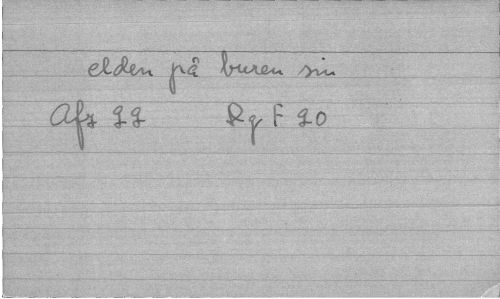 elden på buren sin
Afz 22 Rq F 20